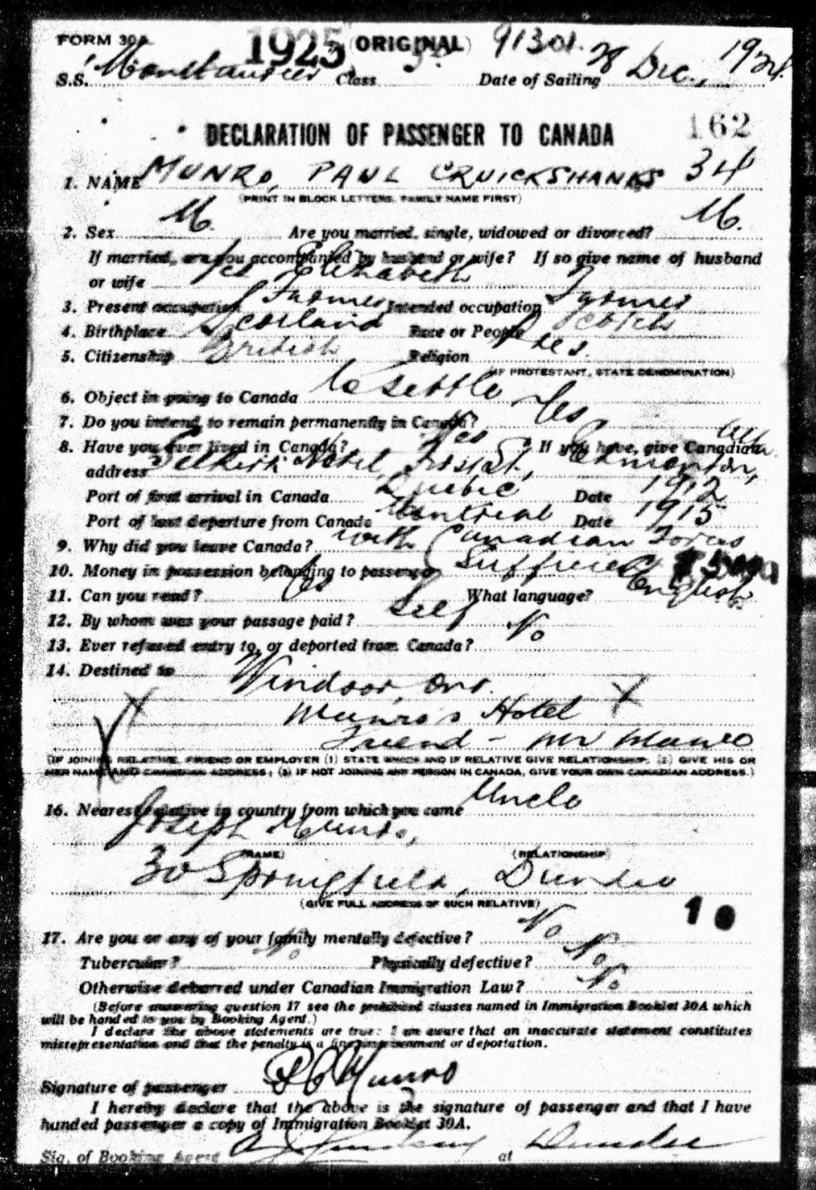 FORM 30A 1925 (ORIGINAL) 91301 3rd 28 Dec., 1924
S.S. Montlaurier Class Date of Sailing
DECLARATION OF PASSENGER TO CANADA 162
1. NAME MUNRO, PAUL CRUICKSHANKS 34
(PRINT IN BLOCK LETTERS, FAMILY NAME FIRST)
2. Sex M. Are you married, single, widowed or divorced? M.
If married, are you accompanied by husband or wife? If so give name of husband
or wife Yes Elizabeth
3. Present occupation Farmer Intended occupation Farmer
4. Birthplace Scotland Race or People Scotch
5. Citizenship British Religion Pres.
(IF PROTESTANT, STATE DENOMINATION)
6. Object in going to Canada To Settle
7. Do you intend to remain permanently in Canada? Yes
8. Have you ever lived in Canada? Yes If you have, give Canadian
address Selkirk Hotel, First St., Edmonton, Alta
Port of first arrival in Canada Quebec Date 1912
Port of last departure from Canada Montreal Date 1915
9. Why did you leave Canada? with Canadian Forces
10. Money in possession belonging to passenger Sufficient
11. Can you read? Yes What language? English
12. By whom was your passage paid? Self
13. Ever refused entry to, or deported from Canada? No
14. Destined to Windsor, Ont.
Munro's Hotel
Friend - Mr Munro
(IF JOINING RELATIVE, FRIEND OR EMPLOYER (1) STATE WHICH AND IF RELATIVE GIVE RELATIONSHIP; (2) GIVE HIS OR
HER NAME AND CANADIAN ADDRESS; (3) IF NOT JOINING ANY PERSON IN CANADA, GIVE YOUR OWN CANADIAN ADDRESS.)
16. Nearest relative in country from which you came Uncle
Joseph Munro,
(NAME) (RELATIONSHIP)
30 Springfield, Dundee
(GIVE FULL ADDRESS OF SUCH RELATIVE)
10
17. Are you or any of your family mentally defective? No
Tubercular? No Physically defective? No
Otherwise debarred under Canadian Immigration Law? No
(Before answering question 17 see the prohibited classes named in Immigration Booklet 30A which
will be handed to you by Booking Agent.)
I declare the above statements are true: I am aware that an inaccurate statement constitutes
misrepresentation and that the penalty is a fine, imprisonment or deportation.
Signature of passenger P C Munro
I hereby declare that the above is the signature of passenger and that I have
handed passenger a copy of Immigration Booklet 30A.
Sig. of Booking Agent at Dundee